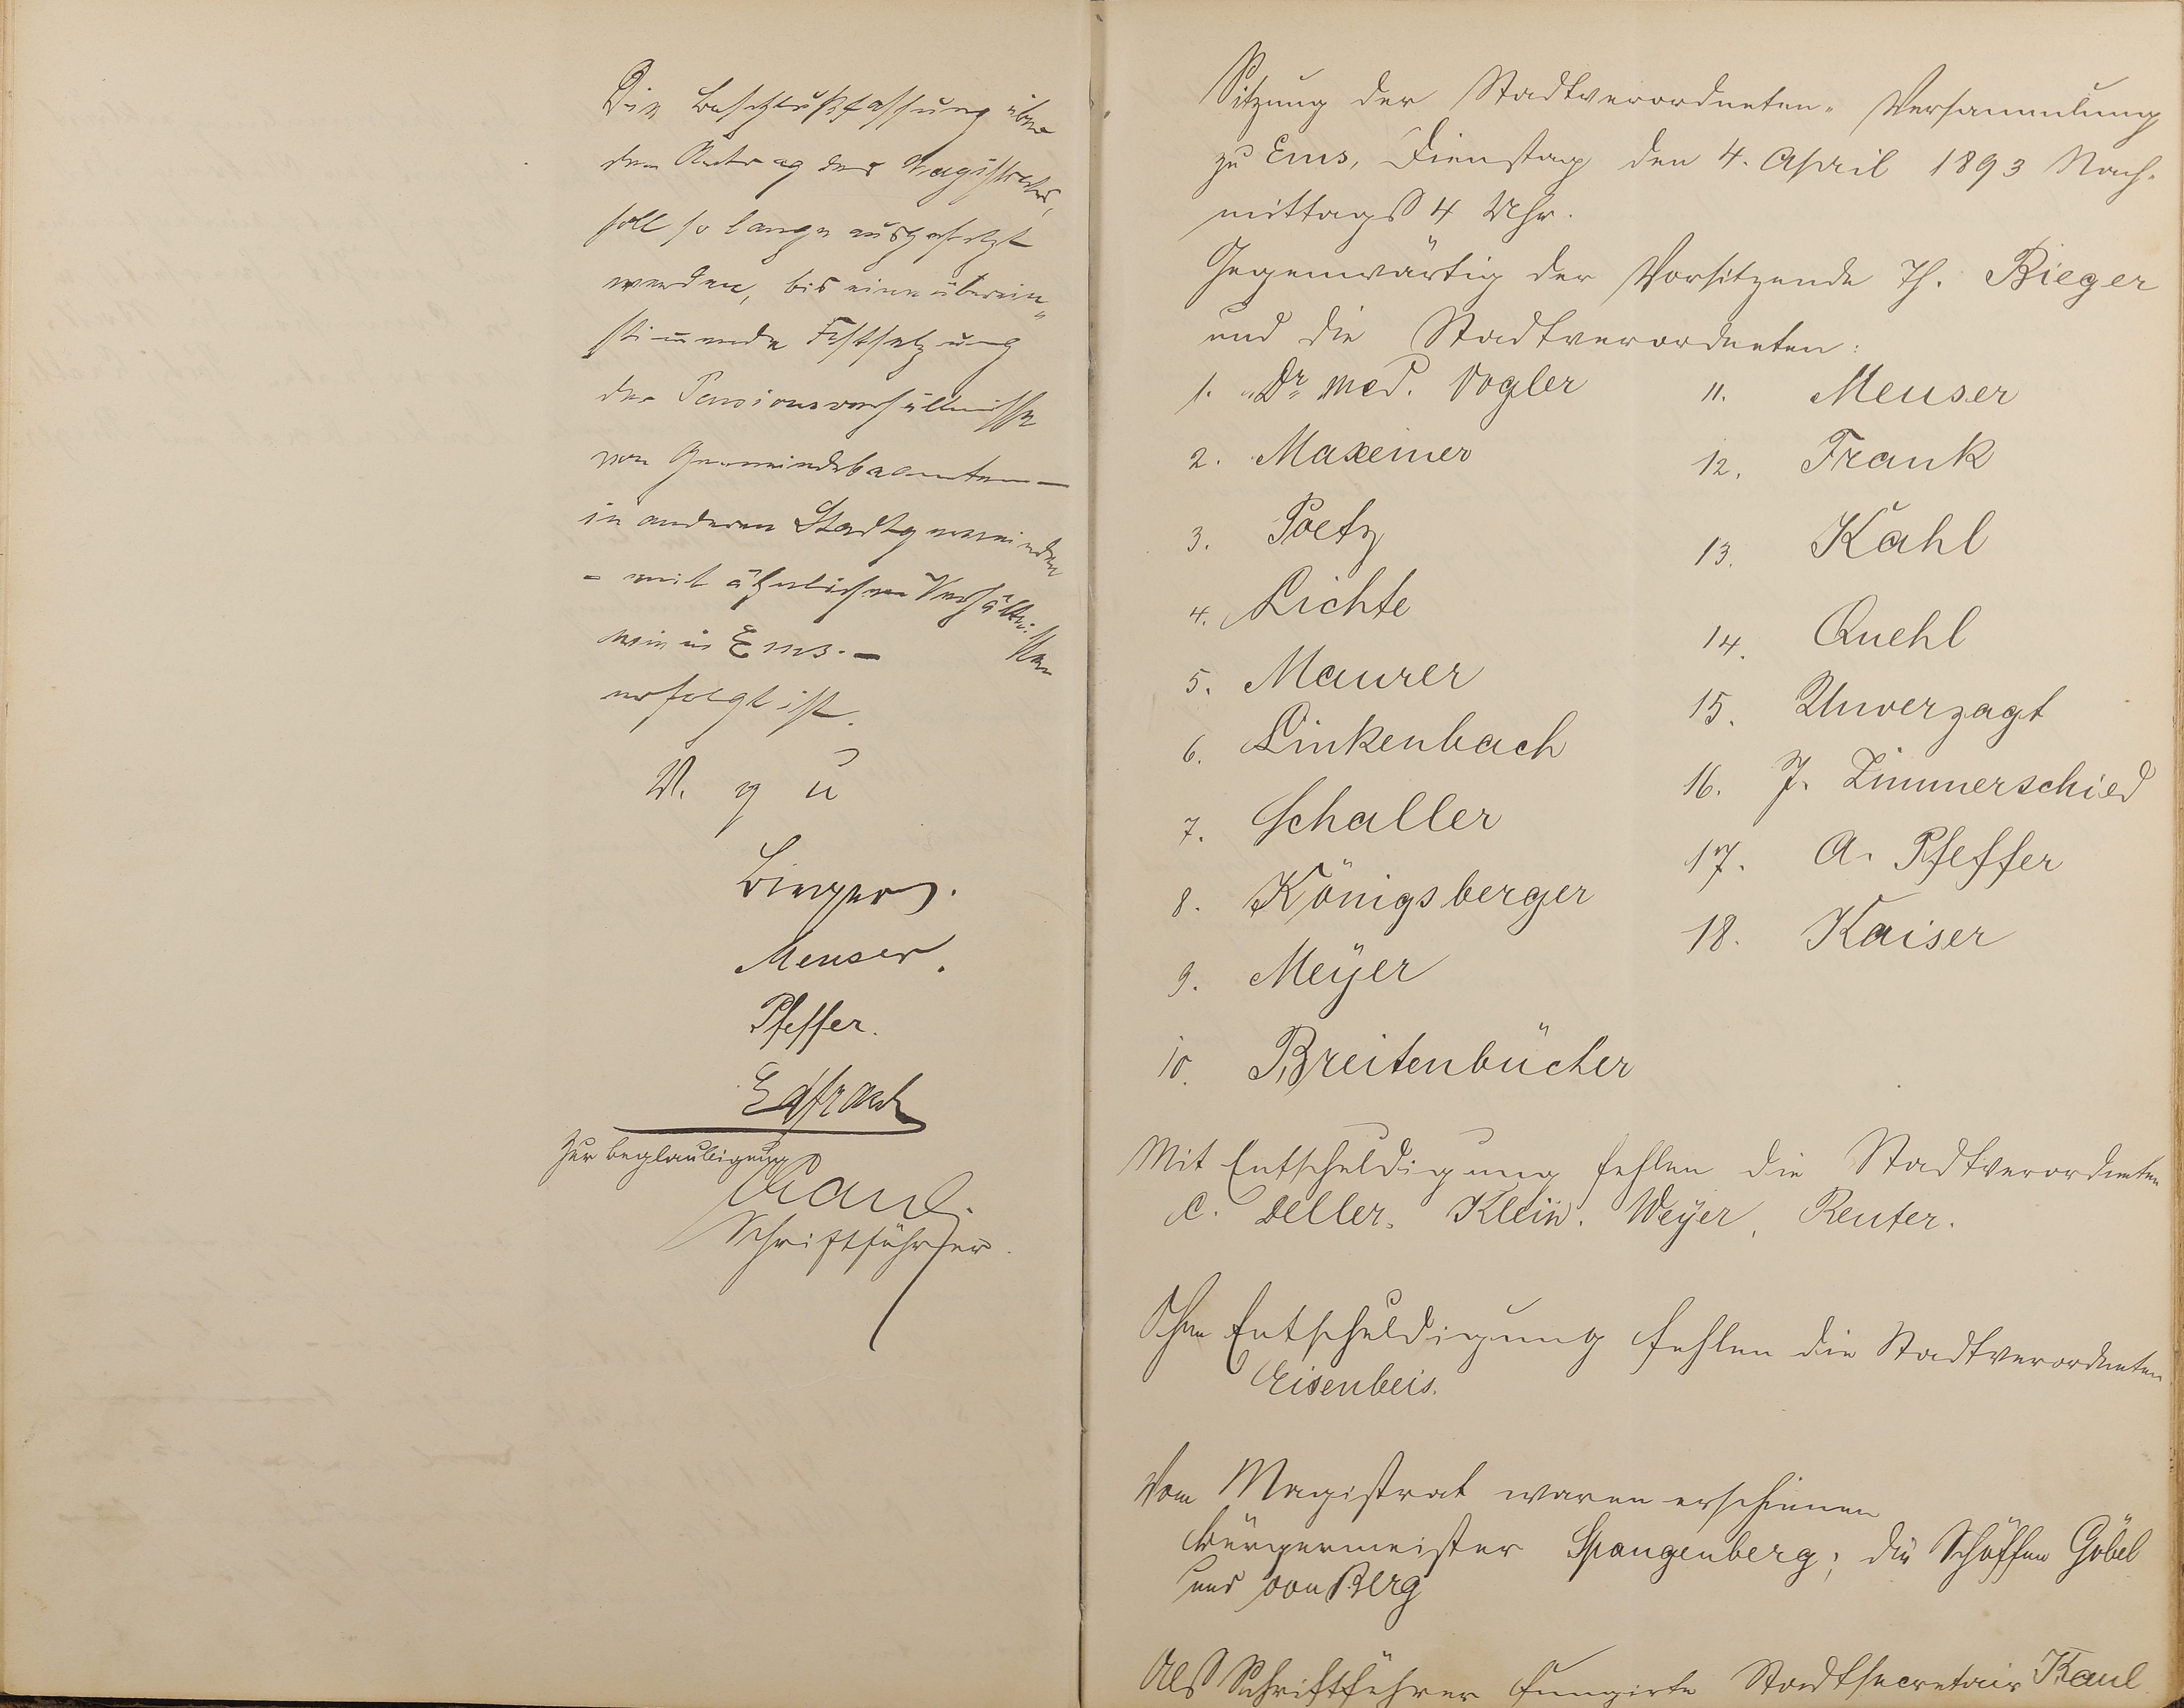 Die Beschlußfassung über
den Antrag des Magistrates,
soll so lange ausgesetzt
werden, bis eine überein„
stimmende Festsetzung
der Pensionsverhältnisse
von Gemeindebeamten —
in anderen Stadtgemeinden
– mit ähnlichen Verhältnissen
wie in Ems. –
erfolgt ist.
V. g u
Bieger.
Meuser.
Pfeffer.
Zur Beglaubigung
Kaul.
Schriftführer.
Sitzung der Stadtverordneten-Versammlung
zu Ems, Dienstag den 4. April 1893 Nach-
mittags 4 Uhr.
Gegenwärtig der Vorsitzende Th. Bieger
und die Stadtverordneten:
1. Dr med. Vogler
2. Maxeiner
3. Poetz
4. Lichte
5. Maurer
6. Linkenbach
7. Schaller
8. Königsberger
9. Meÿer
10. Breitenbücher
11. Meuser
12. Frank
13. Kahl
14. Quehl
15. Unverzagt
16. J. Zimmerschied
17. A. Pfeffer
18. Kaiser
Mit Entschuldigung fehlen die Stadtverordneten
C. Deller. Klein. Weÿer, Reuter.
Ohne Entschuldigung fehlen die Stadtverordneten
Eisenbeis.
Vom Magistrat waren erschienen
Bürgermeister Spangenberg; die Schöffen Göbel
und von Berg
Als Schriftführer fungirte Stadtsecretair Kaul